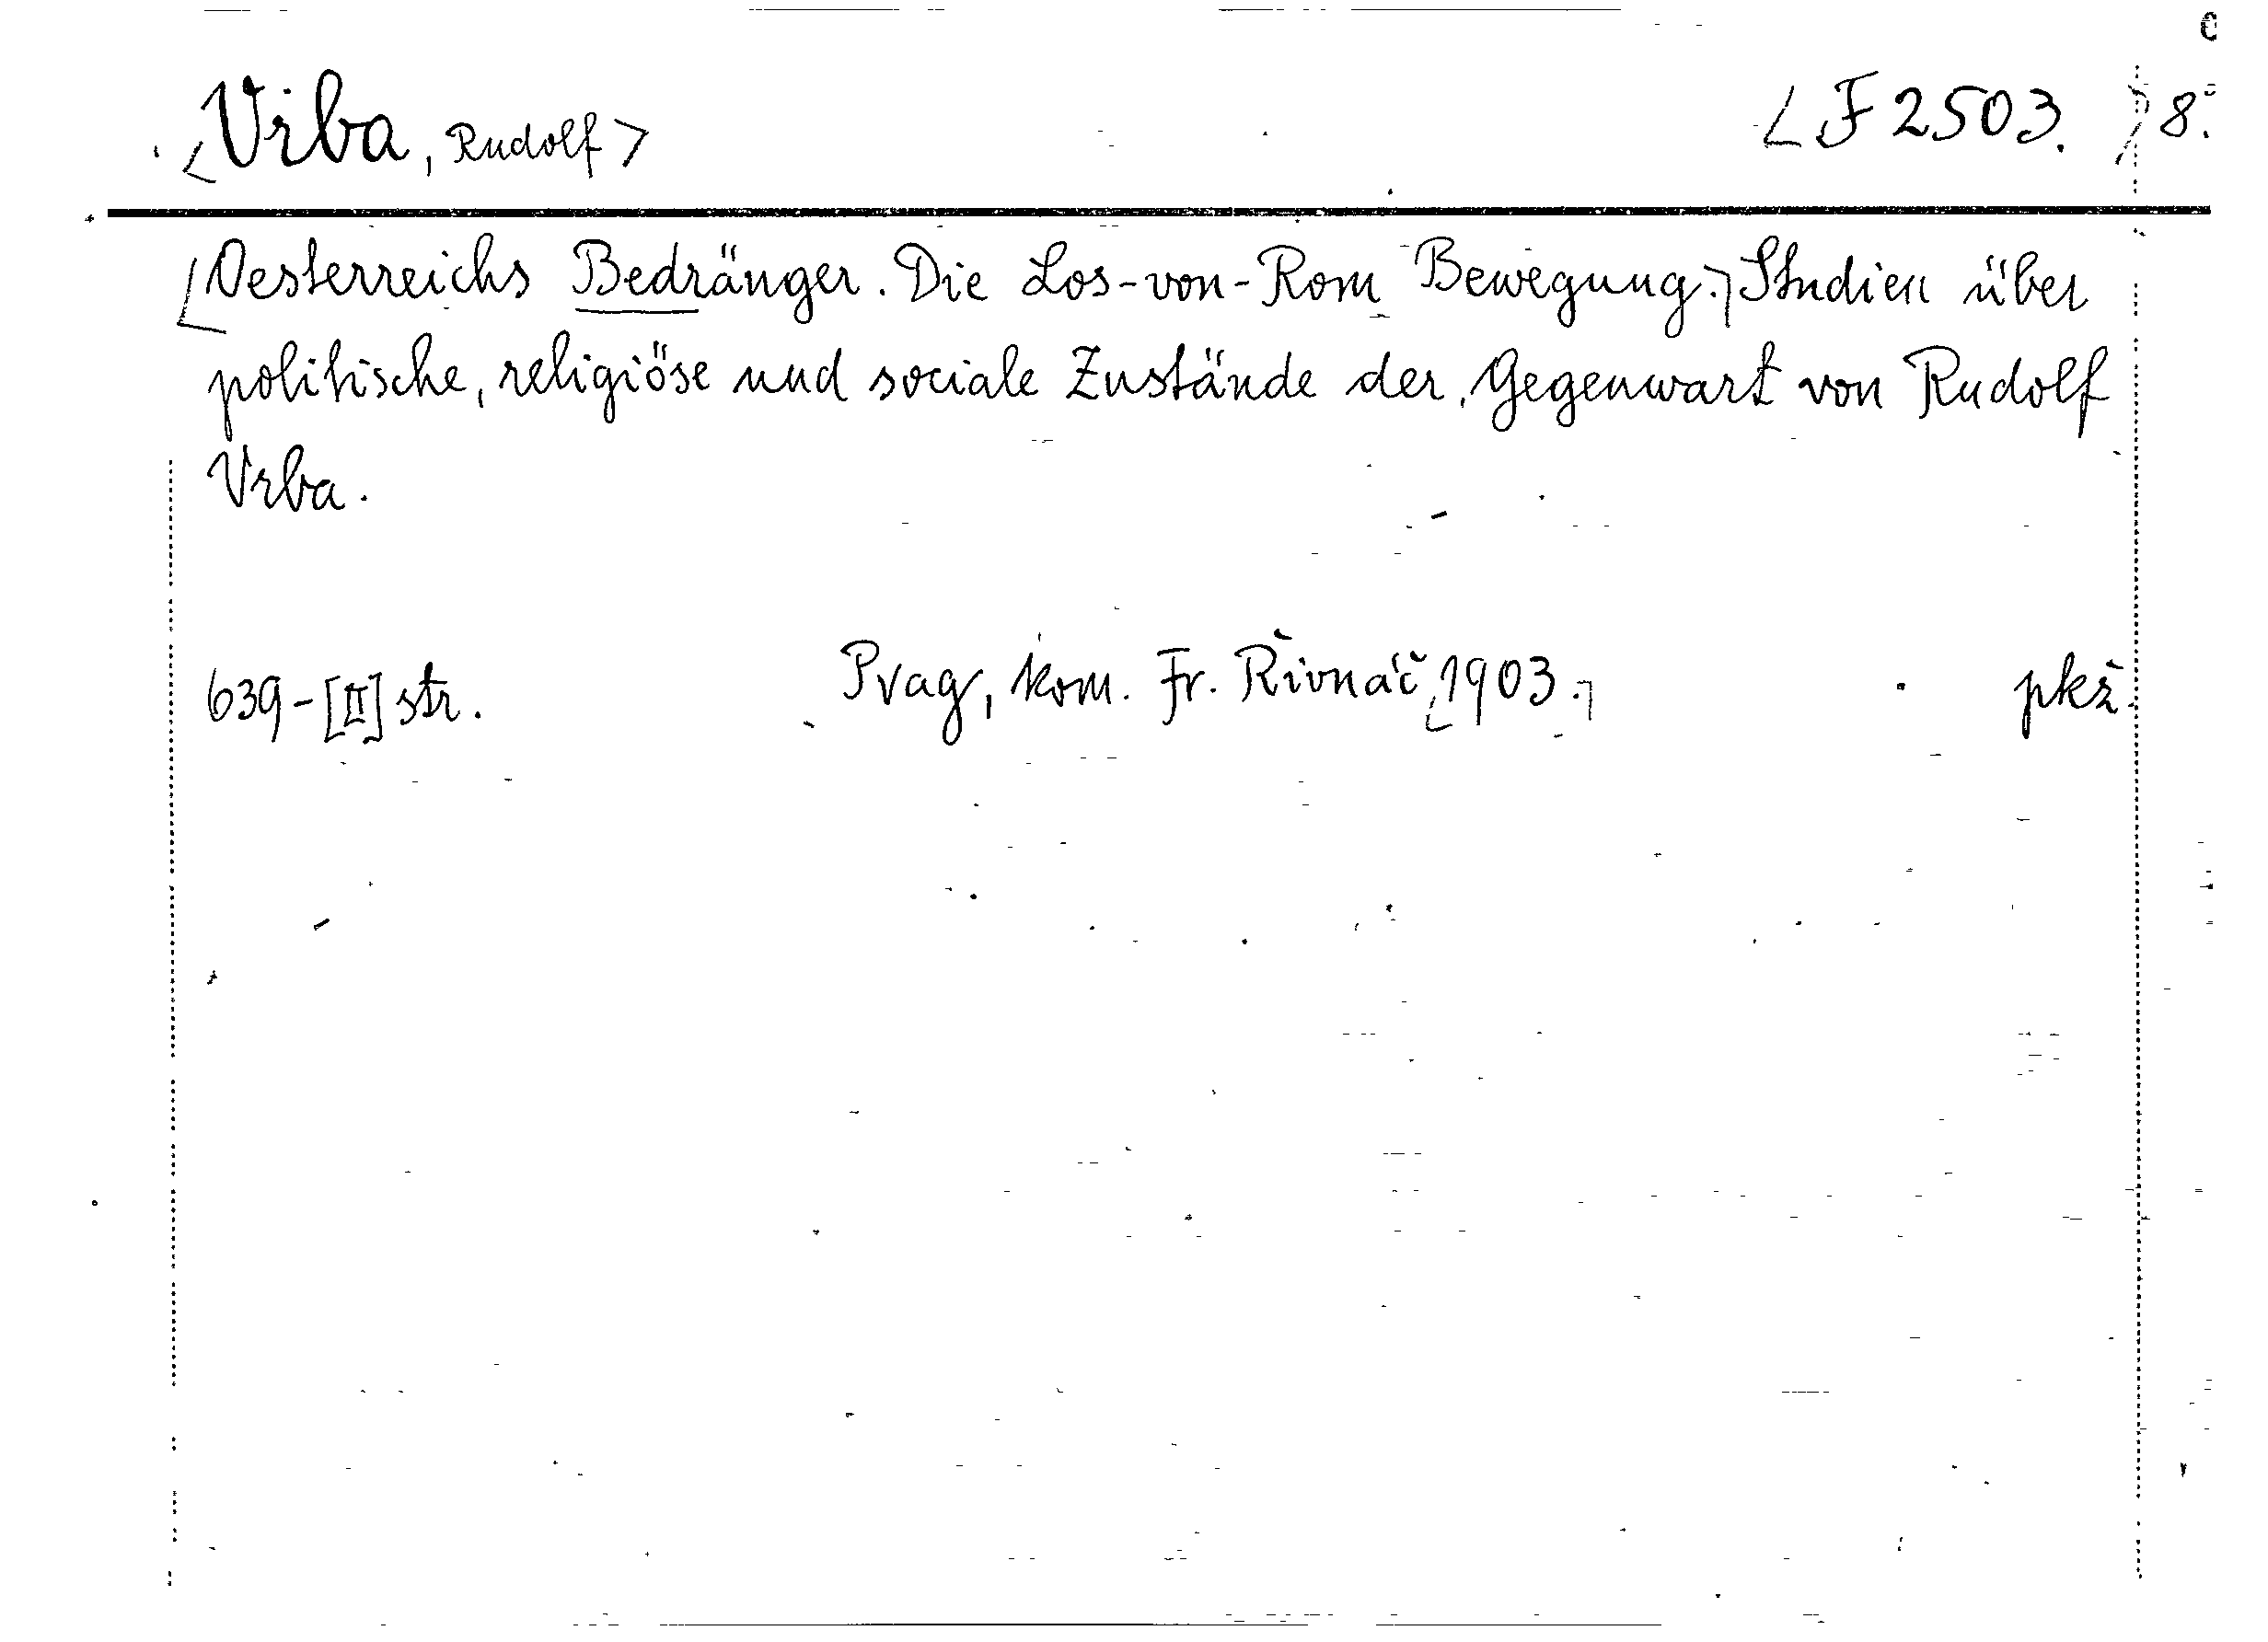 Vrba, Rudolf F 2503. 8°.
Oesterreichs Bedränger. Die Los-von-Rom Bewegung. Studien über
politische, religiöse und sociale Zustände der Gegenwart von Rudolf
Vrba.
639-[II] str. Prag, kom. Fr. Řivnáč, 1903. pkž.